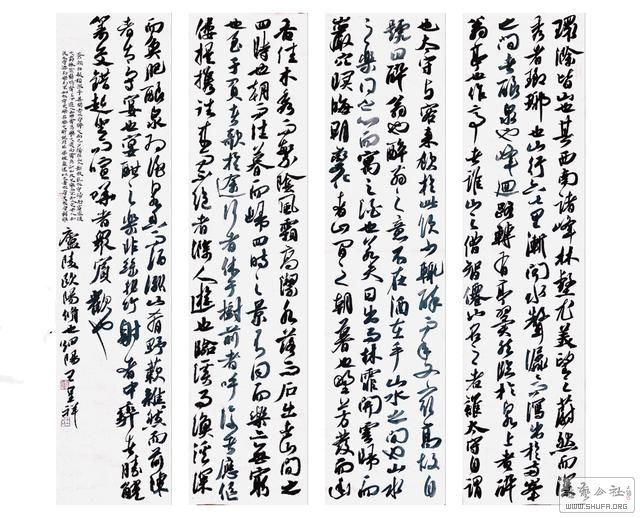 環滁皆山也其西南諸峰林壑尤美望之蔚然而深
秀者瑯琊也山行六七里漸聞水聲潺潺而瀉出於兩峰
之間者釀泉也峰迴路轉有亭翼然臨於泉上者醉
翁亭也作亭者誰山之僧智僊也名之者誰太守自謂
也太守與客來飲於此飲少輒醉而年又最高故自
號曰醉翁也醉翁之意不在酒在乎山水之間也山水
之樂得之心而寓之酒也若夫日出而林霏開雲歸而
巖穴暝晦明變化者山間之朝暮也野芳發而幽
香佳木秀而繁陰風霜高潔水落而石出者山間之
四時也朝而往暮而歸四時之景不同而樂亦無窮
也至于負者歌於途行者休于樹前者呼後者應傴
僂提攜往來而不絕者滁人遊也臨溪而漁溪深
而魚肥釀泉為酒泉香而酒洌山肴野蔌雜然而前陳
者太守宴也宴酣之樂非絲非竹射者中弈者勝觥
籌交錯起坐而喧嘩者眾賓歡也
廬陵歐陽脩也
WWW.SHUFA.ORG